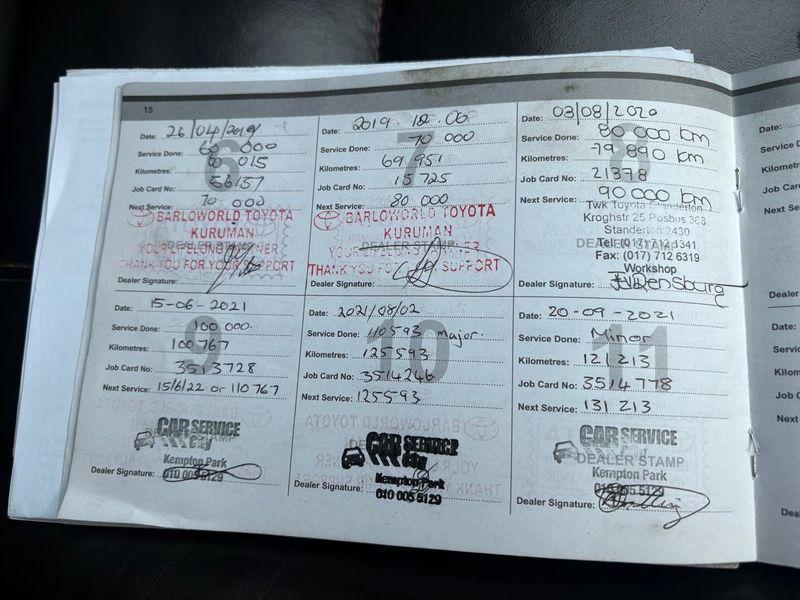 15
6
Date: 26/04/2019
Service Done: 60 000
Kilometres: 60 015
Job Card No: 56157
Next Service: 70 000
BARLOWORLD TOYOTA
KURUMAN
DEALER STAMP
THANK YOU FOR YOUR SUPPORT
Dealer Signature:
7
Date: 2019.12.06
Service Done: 70 000
Kilometres: 69 951
Job Card No: 15725
Next Service: 80 000
BARLOWORLD TOYOTA
KURUMAN
DEALER STAMP
THANK YOU FOR YOUR SUPPORT
Dealer Signature:
8
Date: 03/08/2020
Service Done: 80 000 km
Kilometres: 79 890 km
Job Card No: 21378
Next Service: 90 000 km
Twk Toyota Standerton
Kroghstr 25 Posbus 363
Standerton 2430
Tel: (017) 712 1341
Fax: (017) 712 6319
Workshop
Dealer Signature:
9
Date: 15-06-2021
Service Done: 100 000.
Kilometres: 100 767
Job Card No: 3513728
Next Service: 15/6/22 or 110 767
CAR SERVICE
City
Kempton Park
010 005 5129
Dealer Signature:
10
Date: 2021/08/02
Service Done: 110593 major.
Kilometres: 125593
Job Card No: 3514246
Next Service: 125593
CAR SERVICE
City
Kempton Park
010 005 5129
Dealer Signature:
11
Date: 20-09-2021
Service Done: Minor
Kilometres: 121 213
Job Card No: 3514778
Next Service: 131 213
CAR SERVICE
City
DEALER STAMP
Kempton Park
010 005 5129
Dealer Signature:
Date:
Service D
Kilometr
Job Car
Next Se
Dealer
Date:
Servic
Kilom
Job C
Next
Dea